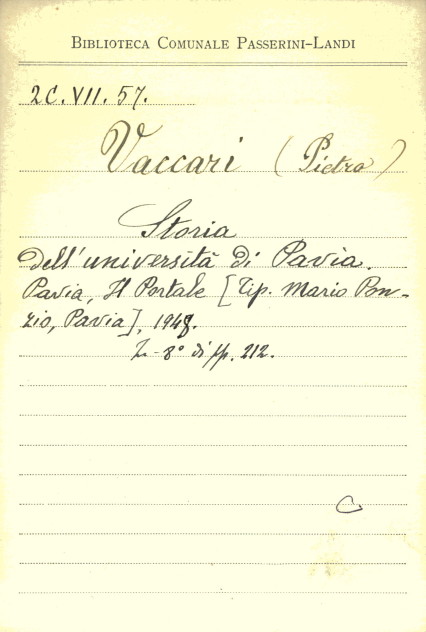 BIBLIOTECA COMUNALE PASSERINI-LANDI
2C. VII. 57.
Vaccari (Pietro)
Storia
dell'università di Pavia.
Pavia, Il Portale [Tip. Mario Pon-
zio, Pavia], 1948.
In-8° di pp. 212.
C